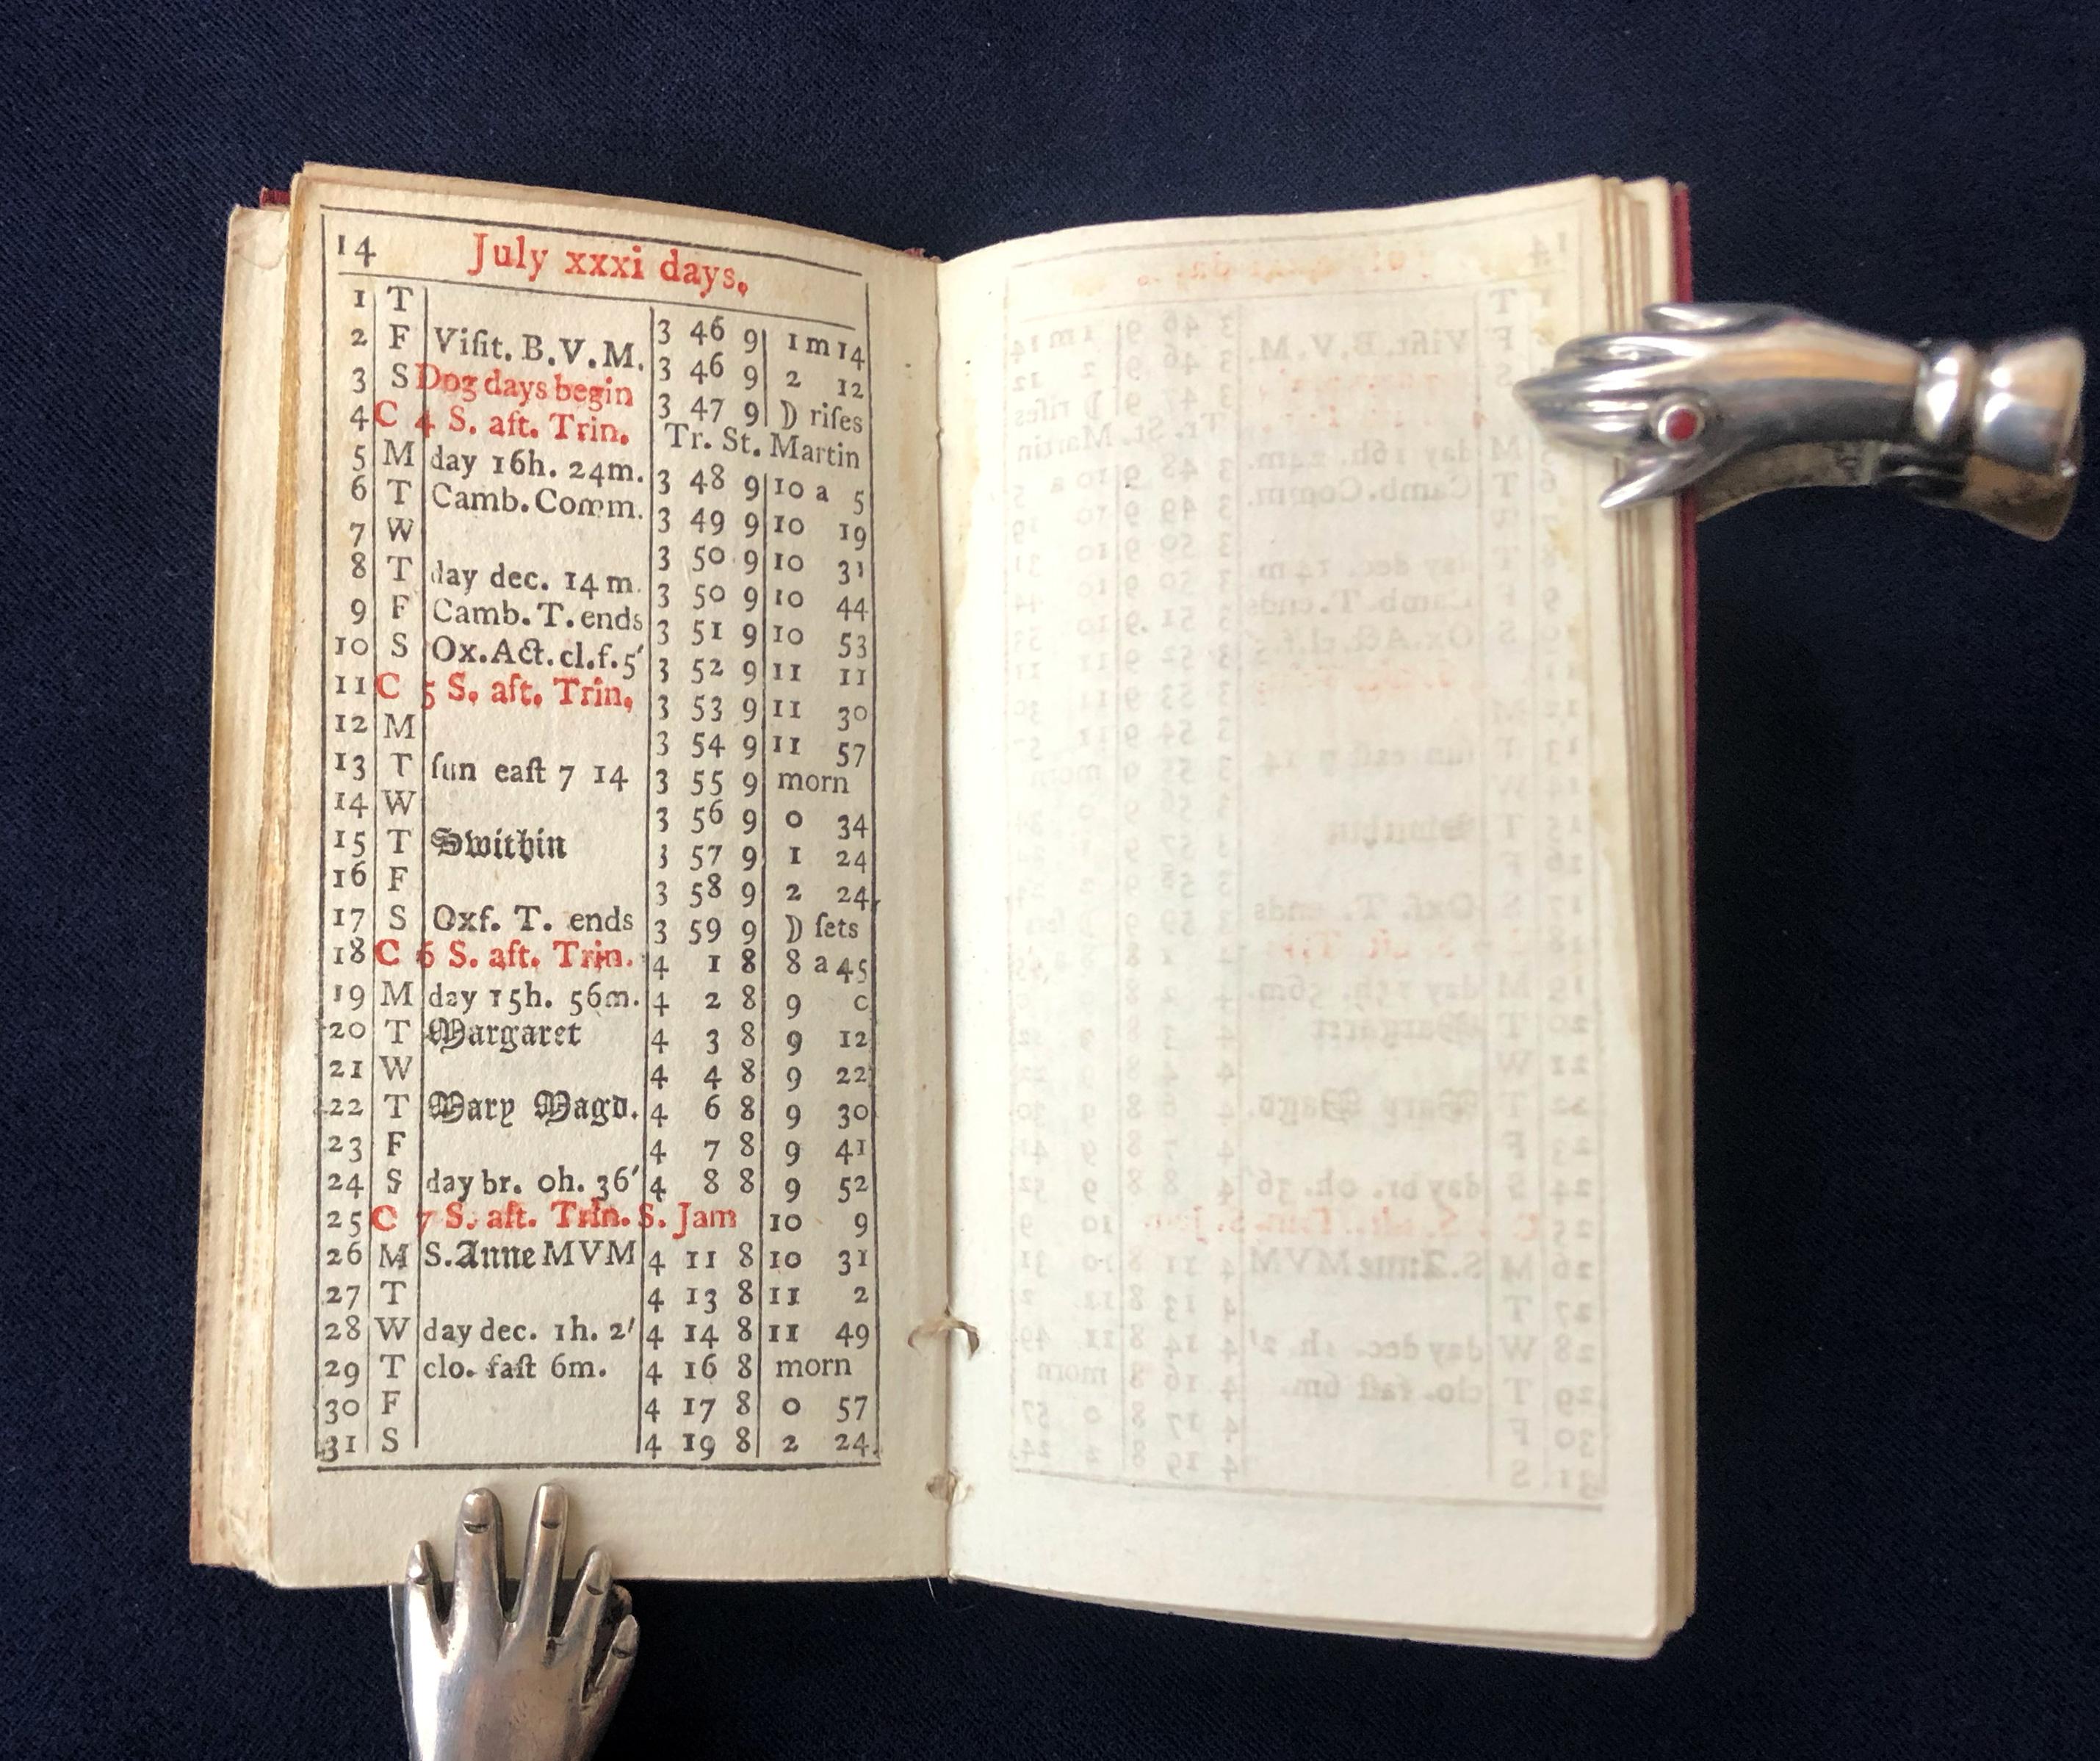 14 July xxxi days.
1 T 3 46 9 1 m 14
2 F Viſit. B. V. M. 3 46 9 2 12
3 S Dog days begin 3 47 9 ☽ riſes
4 C 4 S. aft. Trin. Tr. St. Martin
5 M day 16h. 24m. 3 48 9 10 a 5
6 T Camb. Comm. 3 49 9 10 19
7 W 3 50 9 10 31
8 T day dec. 14 m. 3 50 9 10 44
9 F Camb. T. ends 3 51 9 10 53
10 S Ox. Act. cl. f. 5′ 3 52 9 11 11
11 C 5 S. aft. Trin. 3 53 9 11 30
12 M 3 54 9 11 57
13 T ſun eaſt 7 14 3 55 9 morn
14 W 3 56 9 0 34
15 T Swithin 3 57 9 1 24
16 F 3 58 9 2 24
17 S Oxf. T. ends 3 59 9 ☽ ſets
18 C 6 S. aft. Trin. 4 1 8 8 a 45
19 M day 15h. 56m. 4 2 8 9 0
20 T Margaret 4 3 8 9 12
21 W 4 4 8 9 22
22 T Mary Magd. 4 6 8 9 30
23 F 4 7 8 9 41
24 S day br. 0h. 36′ 4 8 8 9 52
25 C 7 S. aft. Trin. S. Jam 10 9
26 M S. Anne MVM 4 11 8 10 31
27 T 4 13 8 11 2
28 W day dec. 1h. 2′ 4 14 8 11 49
29 T clo. faſt 6m. 4 16 8 morn
30 F 4 17 8 0 57
31 S 4 19 8 2 24